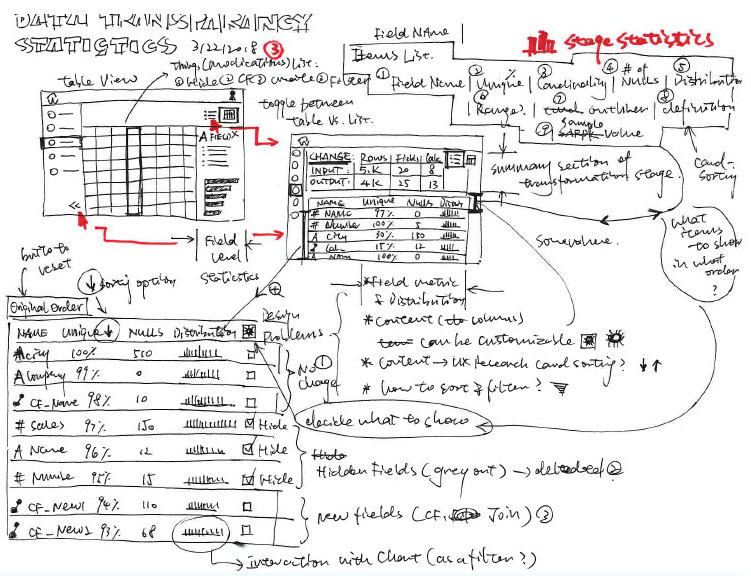 DATA TRANSPARANCY
STATISTICS 3/22/2018 ③
Field Name
Items List.
Stage Statistics
① Field Name | ② Unique % | ③ Cardinality | ④ # of Nulls | ⑤ Distribution
⑥ Range? | ⑦ outlier | ⑧ definition
⑨ Sample Value
Table View
List.
① Hide ② CF ③ ④
toggle between
table vs. list.
A FIELD X
<<
Field
Level
Statistics
CHANGE: Rows | Fields | Calc
INPUT: 5.K 20 8
OUTPUT: 4K 25 13
NAME Unique Nulls Distri
# NAME 97% 0
# Number 100% 5
A City 30% 150
Cal 15% 12
A Nam 100% 0
summary section of
transformation stage.
Card-
sorting
Somewhere.
what
items
to show
in what
order
?
button to
reset
sorting option
Original Order
NAME Unique NULLS Distribution
# city 100% 510
A Company 99% 0
CF_Name 98% 10
# Sales 97% 150 Hide
A Name 96% 12 Hide
# Number 95% 15 Hide
CF_New1 94% 110
CF_New2 93% 68
Design
Problems
* Field metric
& Distribution
* Content (columns)
can be customizable
* Content → UX Research Card sorting? ↓↑
* how to sort & filter?
No ①
change
decide what to show
Hidden Fields (grey out) → ②
New fields (CF, Join) ③
→ Interaction with Chart (as a filter?)